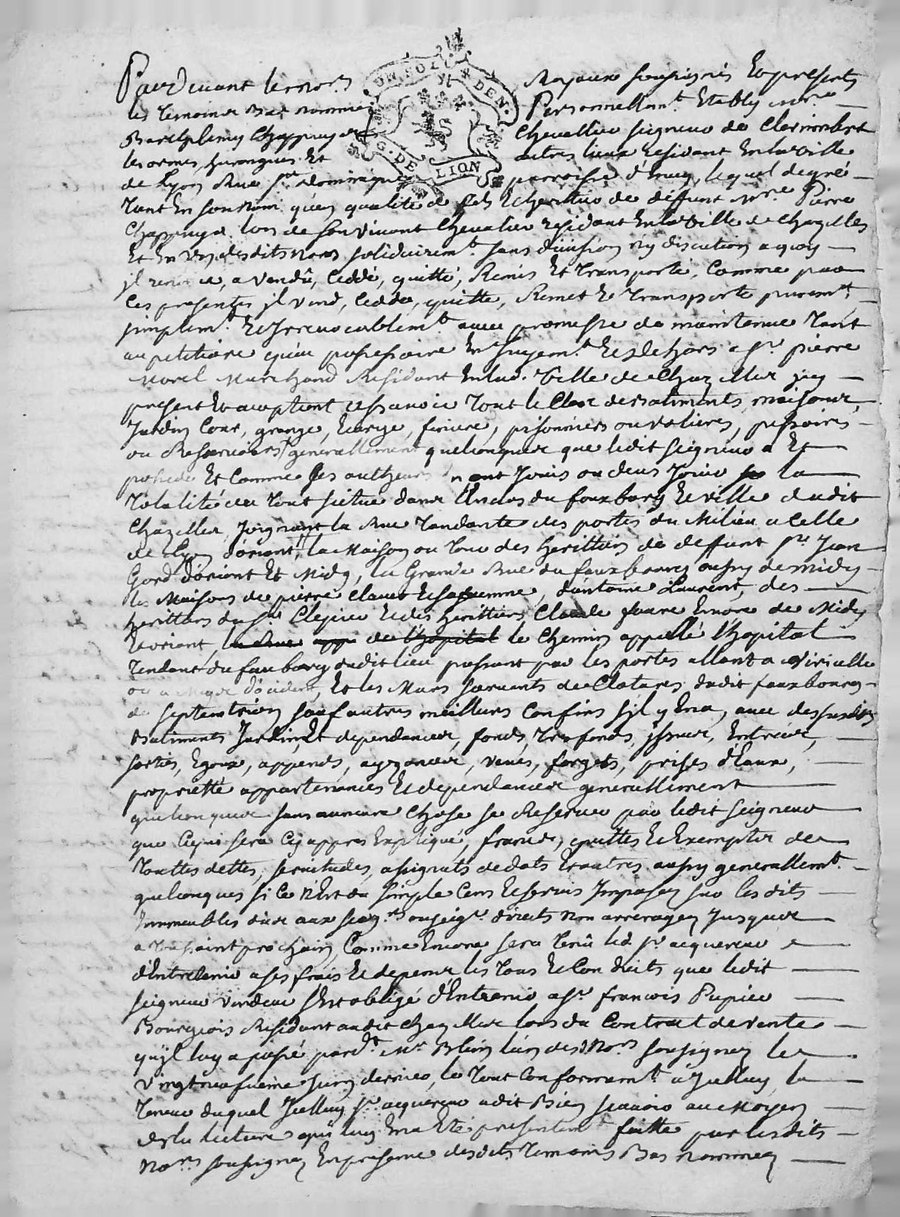 Pardevant les no.rs Royaux soussignés Et presents
les temoins Bas nommés Personnellem.t Etably M.re
Barthelemy Chappuy Chevallier seigneur de Clerimbert
les ormes, et autres lieux residant En la Ville
UN SOL DEN.
G. DE LION
de Lyon Rue S.t Dominique parroisse d'Enay, lequel de gré
tant En son Nom qu'en qualité de fils heritier de deffunt M.re Pierre
Chappuy lors de son vivant Chevalier residant En la Ville de Chazelles
Et En Vxdesdits Noms solidairem.t sans division ny discution a quoy
il renonce, a Vendû, Ceddé, quitté, Remis Et Transporté, Comme par
Ces presentes il Vend, Cedde, quitte, Remet Et Transporte purem.t
simplem.t Et Irrevocablem.t avec promesse de maintenue tant
au petitoire qu'au possessoire En Jugem.t Et dehors a S.r pierre
Morel Marchand Residant En lad. Ville de Chazelles icy
present Et acceptant scavoir Tout le Clos de Batiments, maisons,
Jardin, Cour, grange, Ecurye, feniere, pijonniers ou volieres,
ou Reservoirs, generallement quelconques que ledit seigneur a Et
possede Et Comme ses autheurs En ont Jouis ou deus Jouir la
Totalité du Tout scitué dans L'enclos du fauxbourg Et ville dudit
Chazelles, Joignant la Rue Tendante des portes du Milieu a Celle
de Lyon d'orient, la Maison ou Tour des heritiers de deffunt S.r Jean
Gord d'orient Et Midy, la Grande Rue du fauxbourg aussy de midy
les Maisons de pierre Claude Et d'antoine Laurent, des
heritiers du S.r Et des heritiers Claude Encore de Midy
Et orient, le Chemin appellé L'hopital
Tendant du fauxbourg dudit lieu passant par les portes allant a Viricelle
d'occident, Et les Murs servants de Clotures dudit fauxbourg
de septentrion sauf autres meilleurs Confins s'il y En a, avec des susdits
Batiments Jardin, Et dependances, fonds, Tresfonds, issues, Entrées,
sorties, Egoux, appends, ayzances, vües, forgets, prises d'Eaux,
proprieté appartenances Et dependances generallement
quelconques sans aucune Chose se Reserver par ledit seigneur
que Ce qui sera Cy apprés Expliqué, francs, quittes Et Exempts de
Touttes dettes, servitudes, assignats de dots Et autres aussy generallem.t
quelconques si Ce N'Est du simple Cens Et servis Imposés sur lesdits
Immeubles dûs aux seig.rs ou seig.r directs Non arreragés Jusques
a Toussaint prochain, Comme Encore sera Tenû led. S.r acquereur
d'Entretenir a ses frais Et depens les Tous Et Conduits que ledit
seigneur Vendeur s'Est obligé d'Entretenir a S.r francois Pupier
Bourgeois Residant audit Chazelles lors du Contrat de vente
qu'il luy a passé pard.t M.e Blein l'un des No.rs soussignés le
Vingtneufieme Juin dernier, le Tout Conformem.t a Jcelluy, la
Teneur duquel Jcelluy S.r acquereur a dit Bien scavoir au Moyen
de la lecture qui luy En a Eté presentem.t faitte par lesdits
No.rs soussignés En presence desdits Temoins Bas Nommés